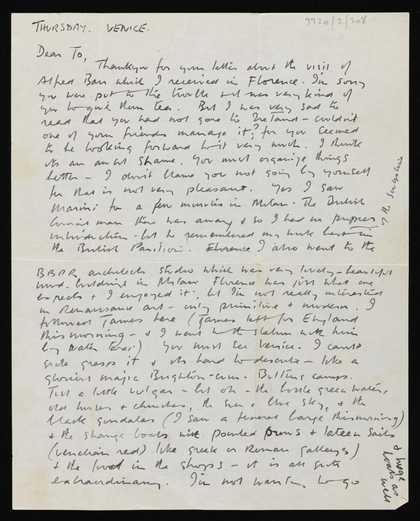 THURSDAY. VENICE.
Dear To,
Thankyou for your letter about the visit of
Alfred Barr which I received in Florence. I'm sorry
you were put to the trouble but was very kind of
you to give them tea. But I was very sad to
read that you had not gone to Ireland – couldn't
one of your friends manage it? for you seemed
to be looking forward to it very much. I think
its an awful shame. You must organize things
better – I don't blame you not going by yourself
for that is not very pleasant. Yes I saw
Marini for a few minutes in Milan. The British
man there was away & so I had no proper
introduction – but he remembered my work
in the British Pavilion. Florence I also went to the
BBPR architects studio which was very lovely – beautiful
building in Milan. Florence was just what one
expects & I enjoyed it, but I'm not really interested
in Renaissance art – only primitive & modern. I
followed James here (James left for England
this morning – & I went to the station with him
by water taxi) You must see Venice. I cannot
quite grasp it & its hard to describe – like a
glorious magic Brighton-cum-Butlins camp.
Just a little vulgar – but oh – the bottle green water,
old houses & churches, the sun & blue sky, & the
black gondolas (I saw a funeral barge this morning)
& the strange boats with pointed prows & lateen sails
(venetian red) like greek or Roman galleys)
& the food in the shops – it is all quite
extraordinary. I'm not wanting to go
& huge
boats as
well